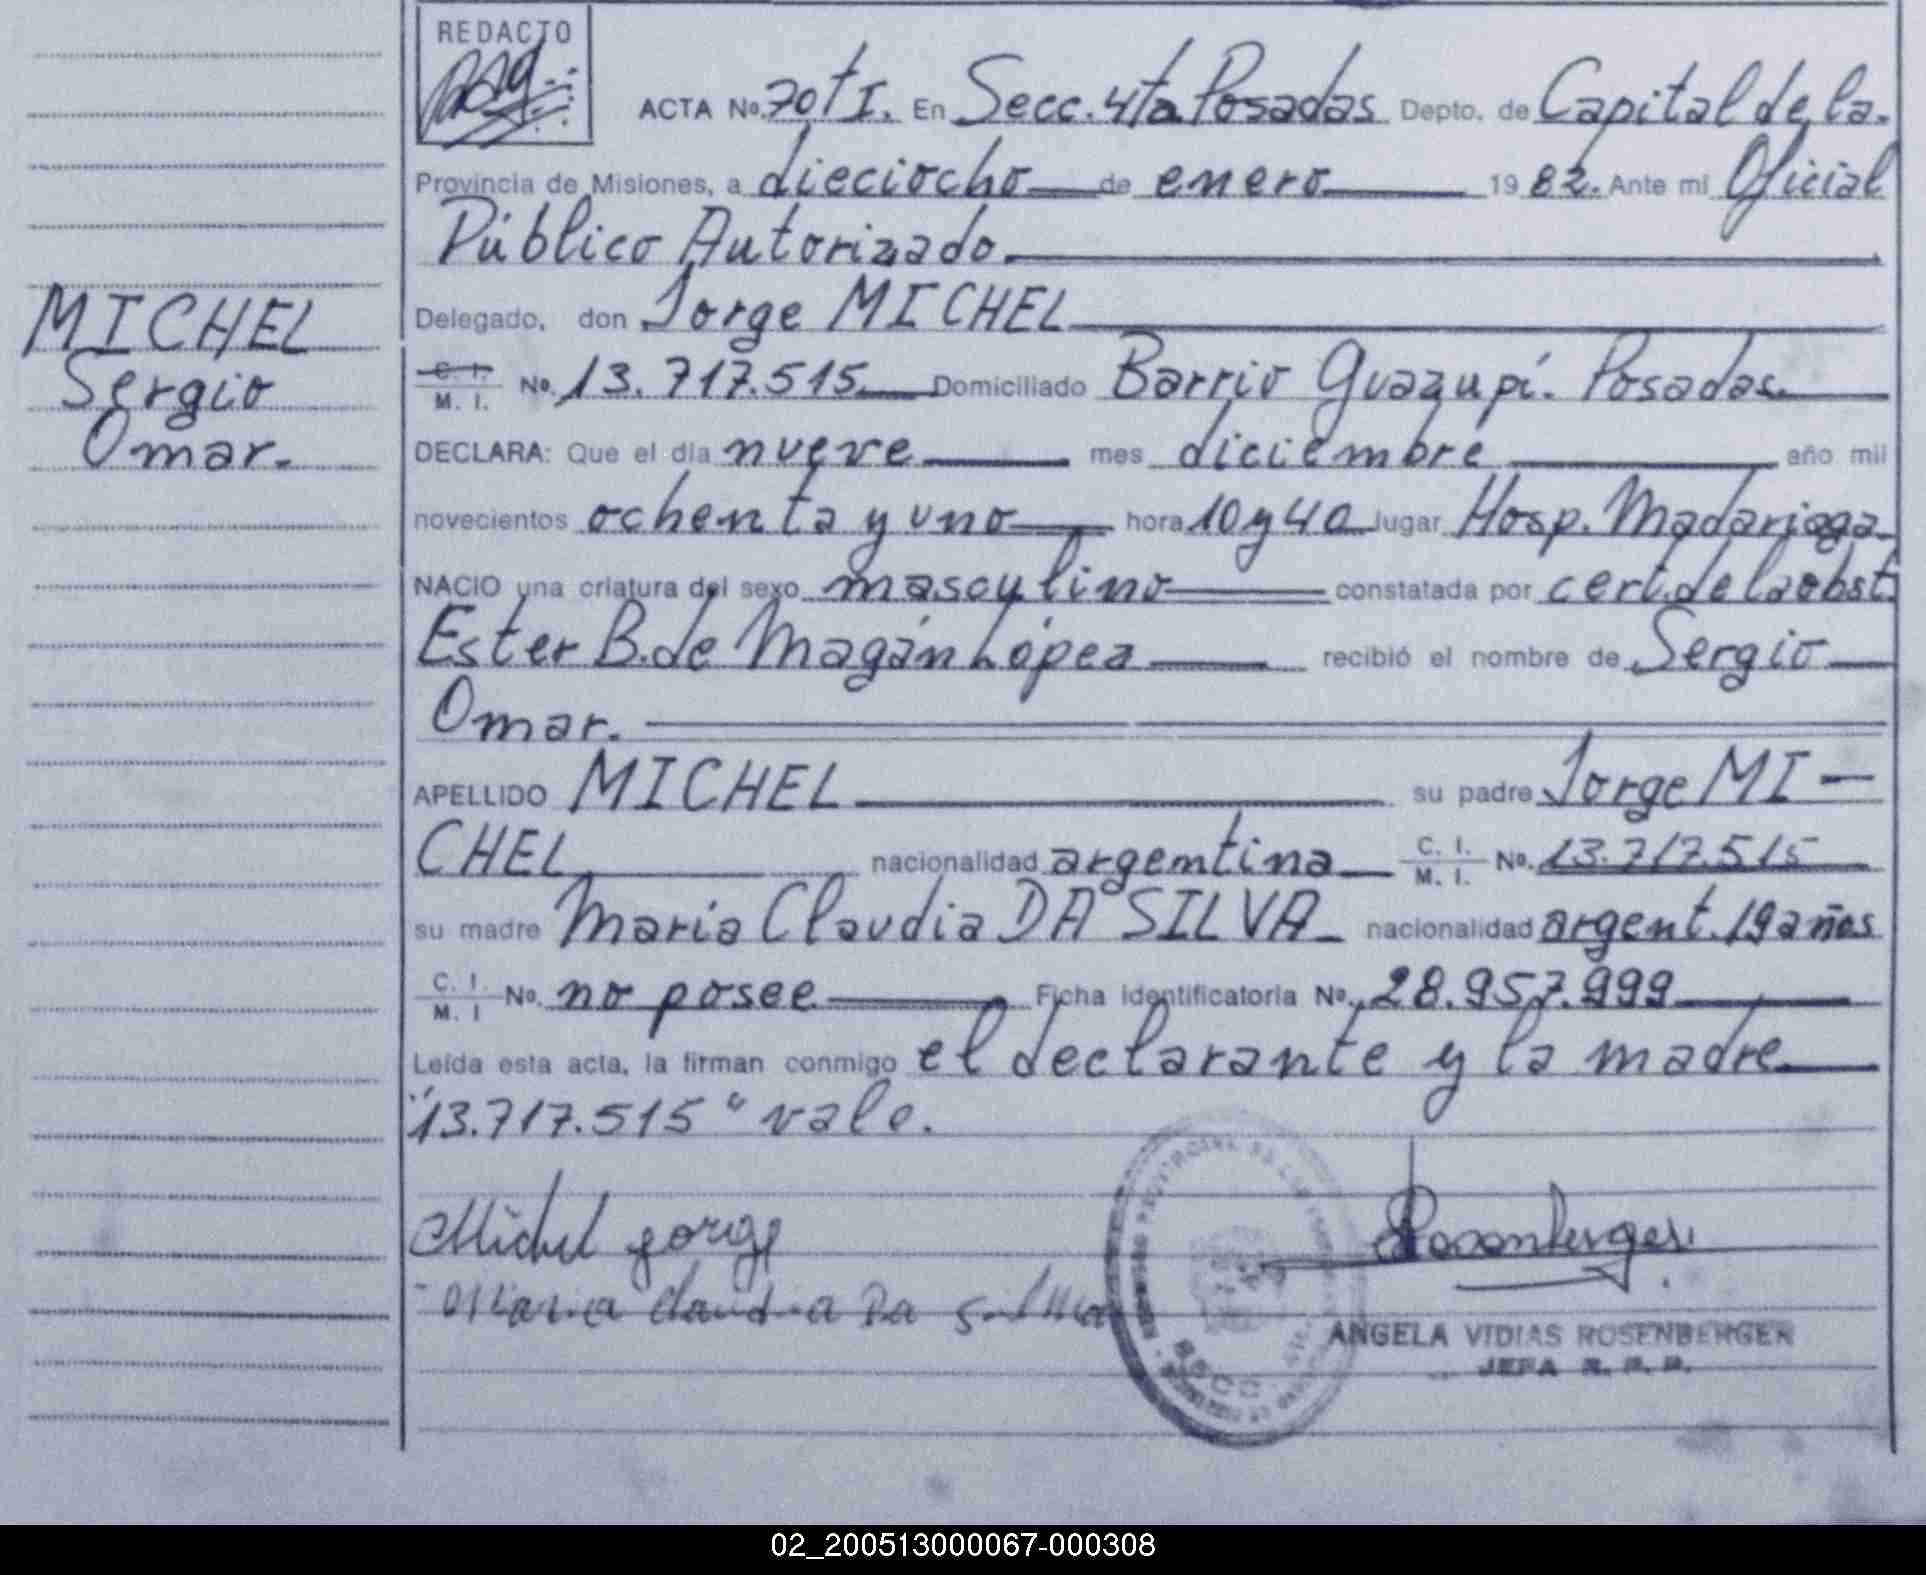 REDACTO
ACTA No. 70 tI. En Secc. 4ta Posadas Depto. de Capital de la.
Provincia de Misiones, a dieciocho de enero 19 82. Ante mi Oficial
Público Autorizado.
Delegado, don Jorge MICHEL
MICHEL
C. I.
M. I.
No. 13.717.515 Domiciliado Barrio Guazupí. Posadas.
Sergio
Omar.
DECLARA: Que el dia nueve mes diciembre año mil
novecientos ochenta y uno hora 10 y 40 lugar Hosp. Madariaga
NACIO una criatura del sexo masculino constatada por cert. de la obst.
Ester B. de Magán López recibió el nombre de Sergio
Omar.
APELLIDO MICHEL su padre Jorge MI-
CHEL nacionalidad argentina C. I. M. I. No. 13.717.515
su madre Maria Claudia DA SILVA nacionalidad argent. 19 años
C. I. M. I No. no posee Ficha identificatoria No. 28.957.999
Leída esta acta, la firman conmigo el declarante y la madre
"13.717.515" vale.
Michel Jorge
Rosenberger
Maria Claudia Da Silva
ANGELA VIDIAS ROSENBERGER
JEFA R. P. P.
02_200513000067-000308